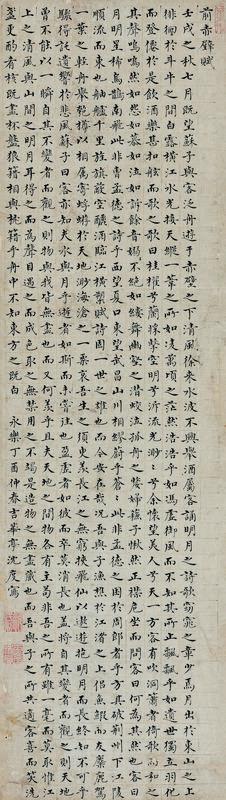 前赤壁賦
壬戌之秋七月既望蘇子與客泛舟遊于赤壁之下清風徐來水波不興舉酒屬客誦明月之詩歌窈窕之章少焉月出於東山之上
徘徊於斗牛之間白露橫江水光接天縱一葦之所如凌萬頃之茫然浩浩乎如馮虛御風而不知其所止飄飄乎如遺世獨立羽化
而登僊於是飲酒樂甚扣舷而歌之歌曰桂櫂兮蘭槳擊空明兮泝流光渺渺兮余懷望美人兮天一方客有吹洞簫者倚歌而和之
其聲嗚嗚然如怨如慕如泣如訴餘音嫋嫋不絕如縷舞幽壑之潛蛟泣孤舟之嫠婦蘇子愀然正襟危坐而問客曰何為其然也客曰
月明星稀烏鵲南飛此非曹孟德之詩乎西望夏口東望武昌山川相繆鬱乎蒼蒼此非孟德之困於周郎者乎方其破荊州下江陵
順流而東也舳艫千里旌旗蔽空釃酒臨江橫槊賦詩固一世之雄也而今安在哉況吾與子漁樵於江渚之上侶魚鰕而友麋鹿駕
一葉之輕舟舉匏樽以相屬寄蜉蝣於天地渺滄海之一粟哀吾生之須臾羨長江之無窮挾飛仙以遨遊抱明月而長終知不可乎
驟得託遺響於悲風蘇子曰客亦知夫水與月乎逝者如斯而未嘗往也盈虛者如彼而卒莫消長也蓋將自其變者而觀之則天地
曾不能以一瞬自其不變者而觀之則物與我皆無盡也而又何羨乎且夫天地之間物各有主苟非吾之所有雖一毫而莫取惟江
上之清風與山間之明月耳得之而為聲目遇之而成色取之無禁用之不竭是造物之無盡藏也而吾與子之所共適客喜而笑洗
盞更酌肴核既盡杯盤狼籍相與枕藉乎舟中不知東方之既白 永樂丁酉仲春吉華亭沈度寫